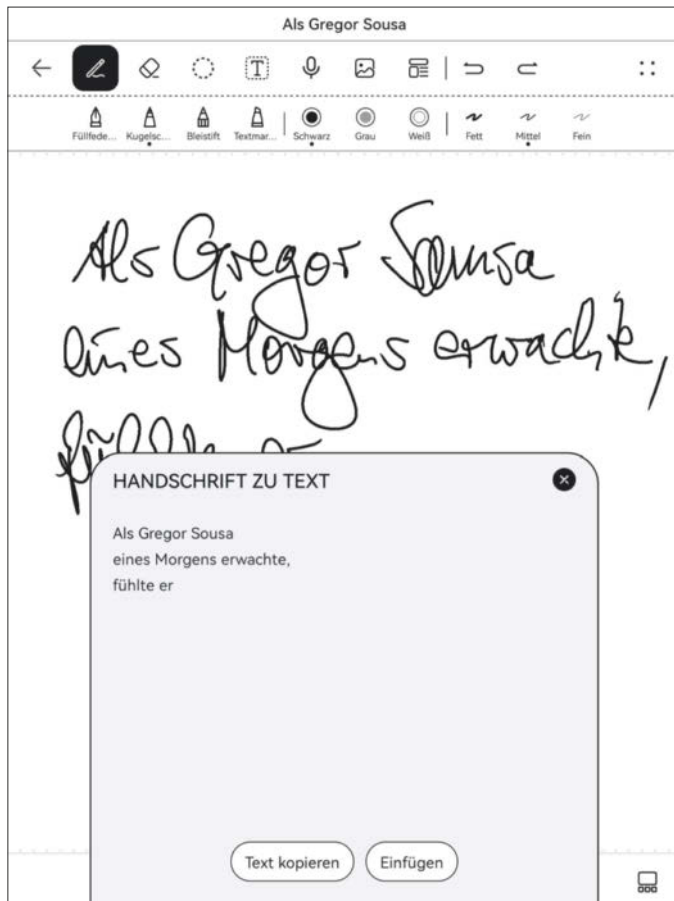 Als Gregor Sousa
Füllfede... Kugelsc... Bleistift Textmar... Schwarz Grau Weiß Fett Mittel Fein
Als Gregor Samsa
eines Morgens erwachte,
fühlte er
HANDSCHRIFT ZU TEXT
Als Gregor Sousa
eines Morgens erwachte,
fühlte er
Text kopieren Einfügen